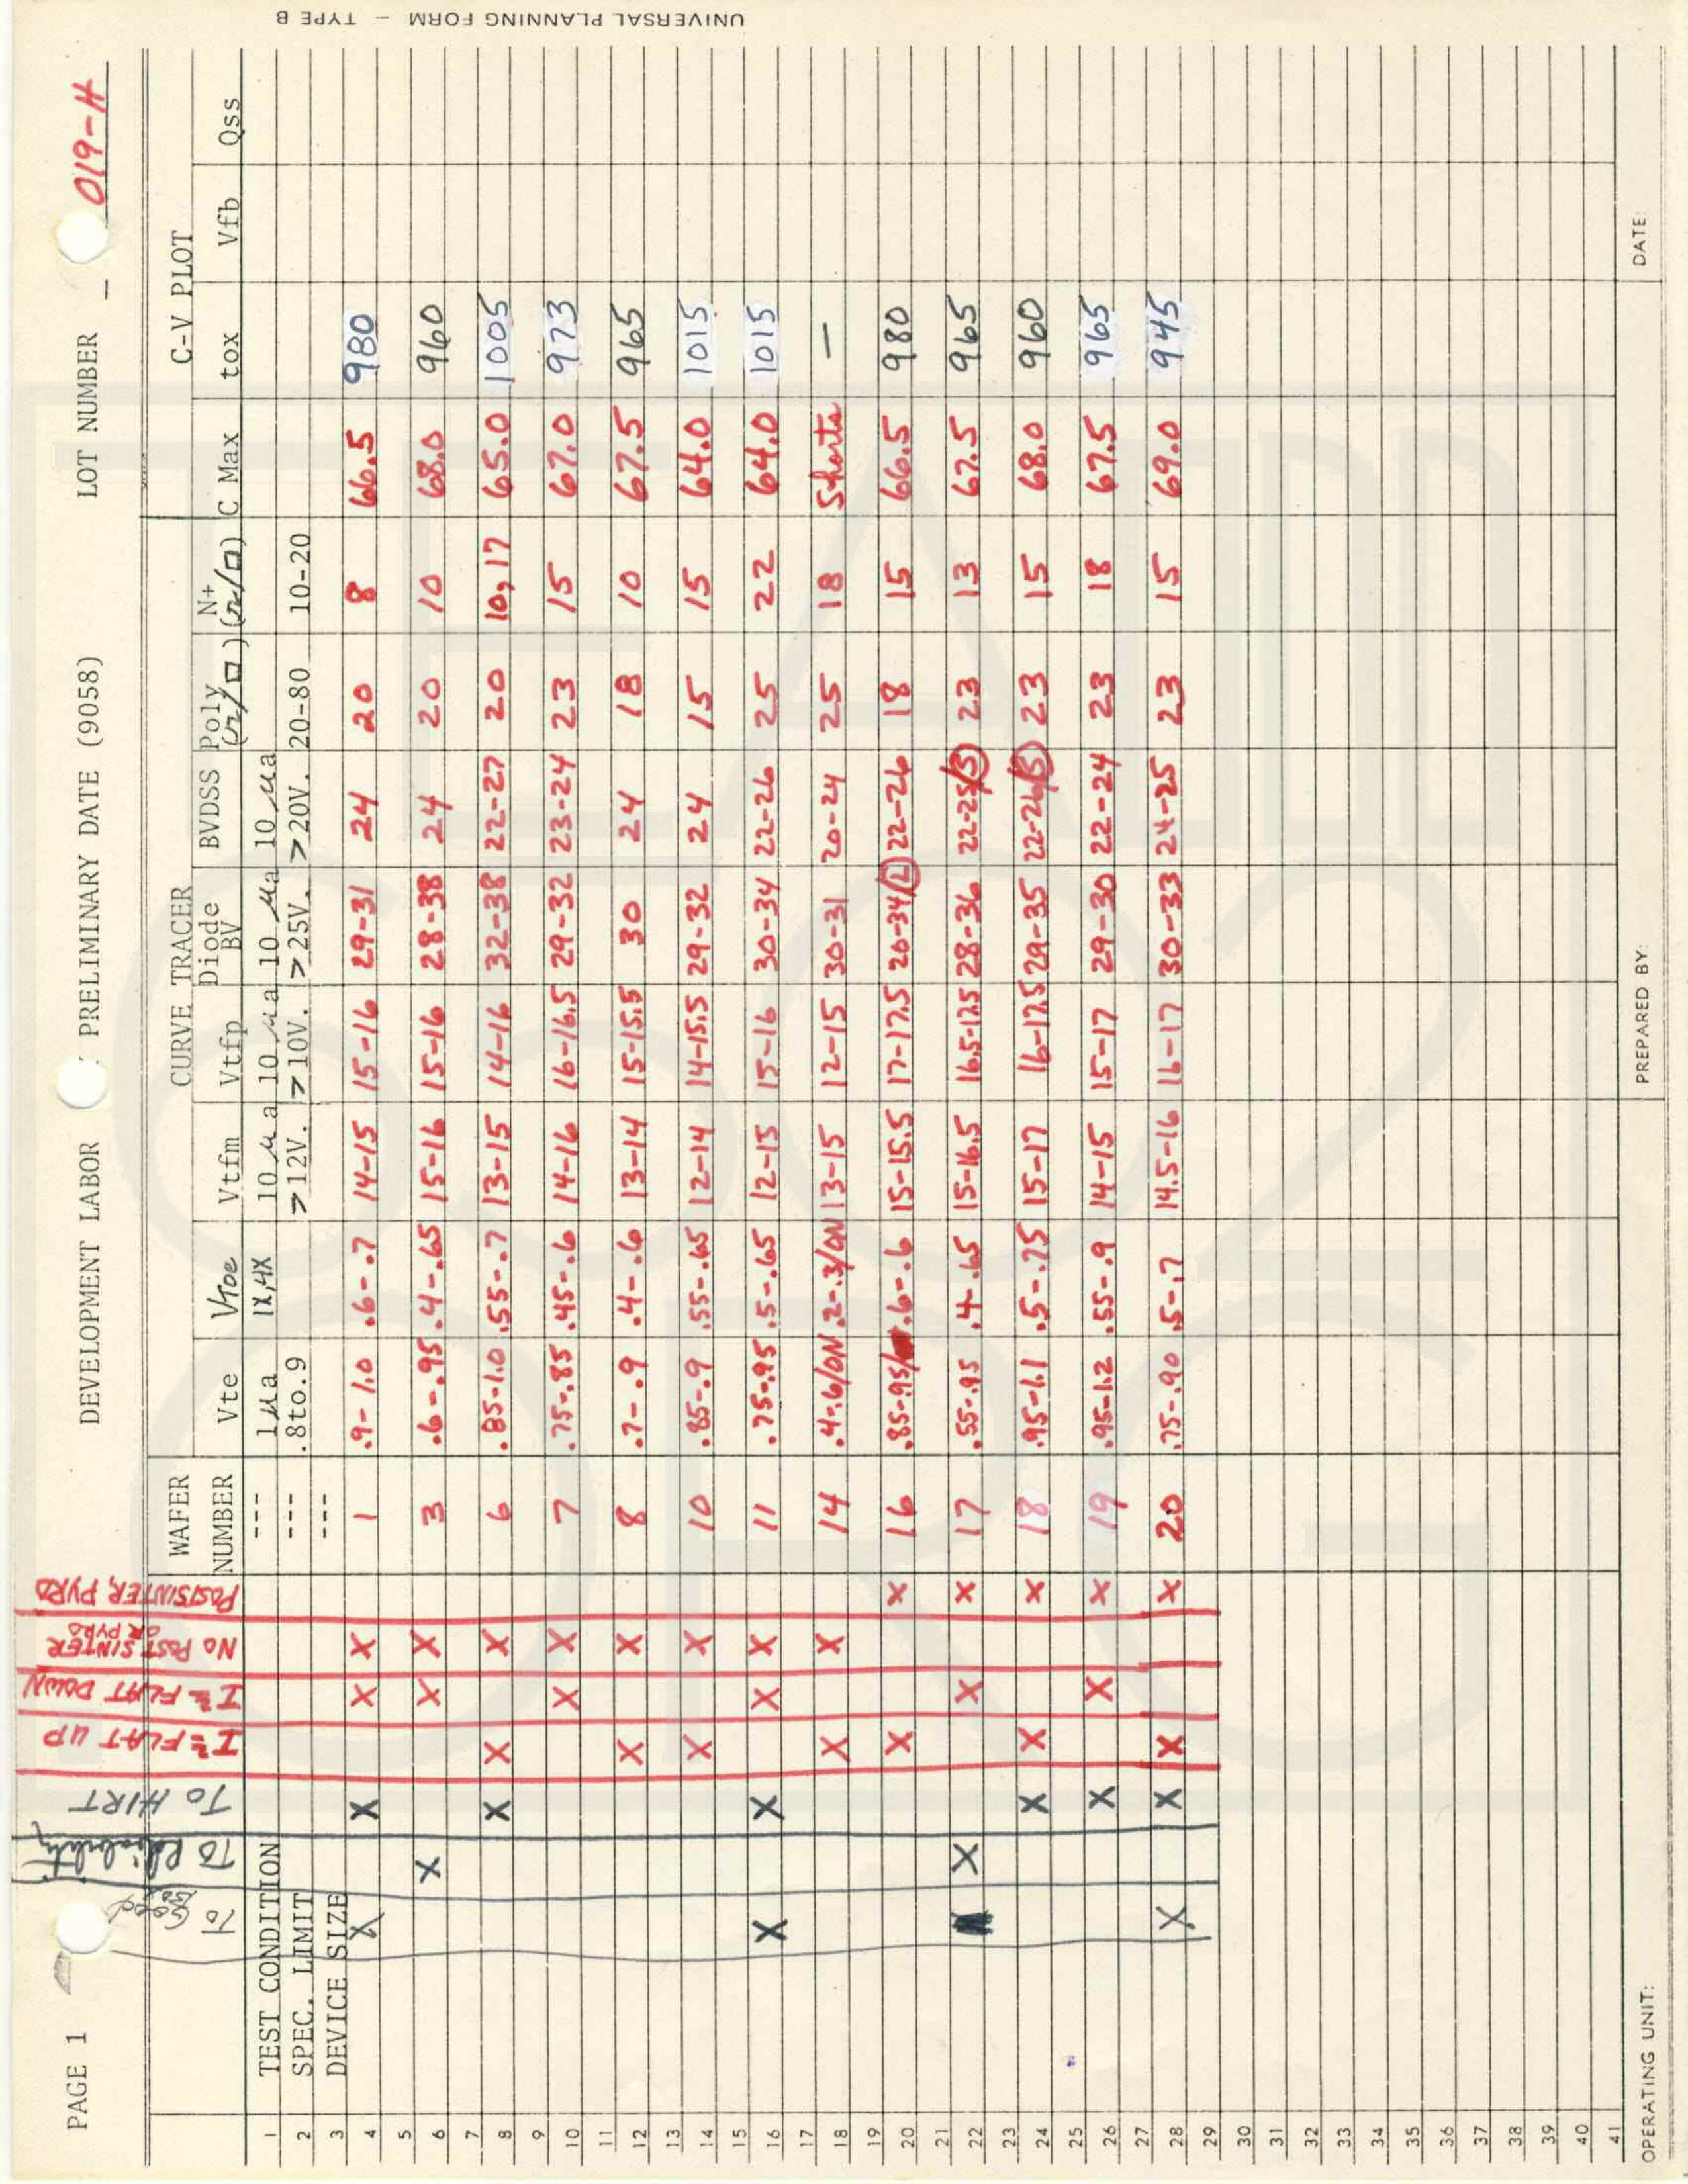 PAGE 1 DEVELOPMENT LABOR PRELIMINARY DATE (9058) LOT NUMBER – 019-H
To Good To Reliability TO HIRT I² FLAT UP I² FLAT DOWN NO POST SINTER OR PYRO POSTSINTER, PYRO
WAFER CURVE TRACER C-V PLOT
NUMBER Vte Vtoe Vtfm Vtfp Diode BV BVDSS Poly (Ω/□) N+ (Ω/□) C Max tox Vfb Qss
1 TEST CONDITION --- 1 μa 1X,4X 10 μa 10 μa 10 μa 10 μa
2 SPEC. LIMIT --- .8to.9 >12V. >10V. >25V. >20V. 20-80 10-20
3 DEVICE SIZE ---
4 X X X X 1 .9-1.0 .6-.7 14-15 15-16 29-31 24 20 8 66.5 980
5
6 X X X 3 .6-.95 .4-.65 15-16 15-16 28-38 24 20 10 68.0 960
7
8 X X X 6 .85-1.0 .55-.7 13-15 14-16 32-38 22-27 20 10,17 65.0 1005
9
10 X X 7 .75-.85 .45-.6 14-16 16-16.5 29-32 23-24 23 15 67.0 973
11
12 X X 8 .7-.9 .4-.6 13-14 15-15.5 30 24 18 10 67.5 965
13
14 X X 10 .85-.9 .55-.65 12-14 14-15.5 29-32 24 15 15 64.0 1015
15
16 X X X X 11 .75-.95 .5-.65 12-15 15-16 30-34 22-26 25 22 64.0 1015
17
18 X X 14 .4-.6/ON .2-.3/ON 13-15 12-15 30-31 20-24 25 18 Shorts –
19
20 X X 16 .85-.95/ .6-.6 15-15.5 17-17.5 20-34/L 22-26 18 15 66.5 980
21
22 X X X 17 .55-.95 .4-.65 15-16.5 16.5-17.5 28-36 22-25/S 23 13 67.5 965
23
24 X X X 18 .95-1.1 .5-.75 15-17 16-17.5 29-35 22-26/S 23 15 68.0 960
25
26 X X X 19 .95-1.2 .55-.9 14-15 15-17 29-30 22-24 23 18 67.5 965
27
28 X X X X 20 .75-.90 .5-.7 14.5-16 16-17 30-33 24-25 23 15 69.0 945
29
30
31
32
33
34
35
36
37
38
39
40
41
OPERATING UNIT: PREPARED BY: DATE:
UNIVERSAL PLANNING FORM – TYPE B